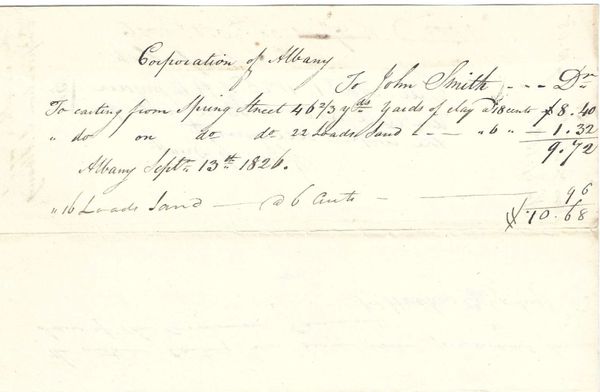 Corporation of Albany
To John Smith - - - Dr
To carting from Spring Street 46 2/3 yds Yards of clay a 18 cents $8.40
" do on do do 22 Loads Sand - — " 6 " — 1.32
9.72
Albany Septr 13th 1826.
" 16 Loads Sand — a 6 Cents - — 96
$10.68